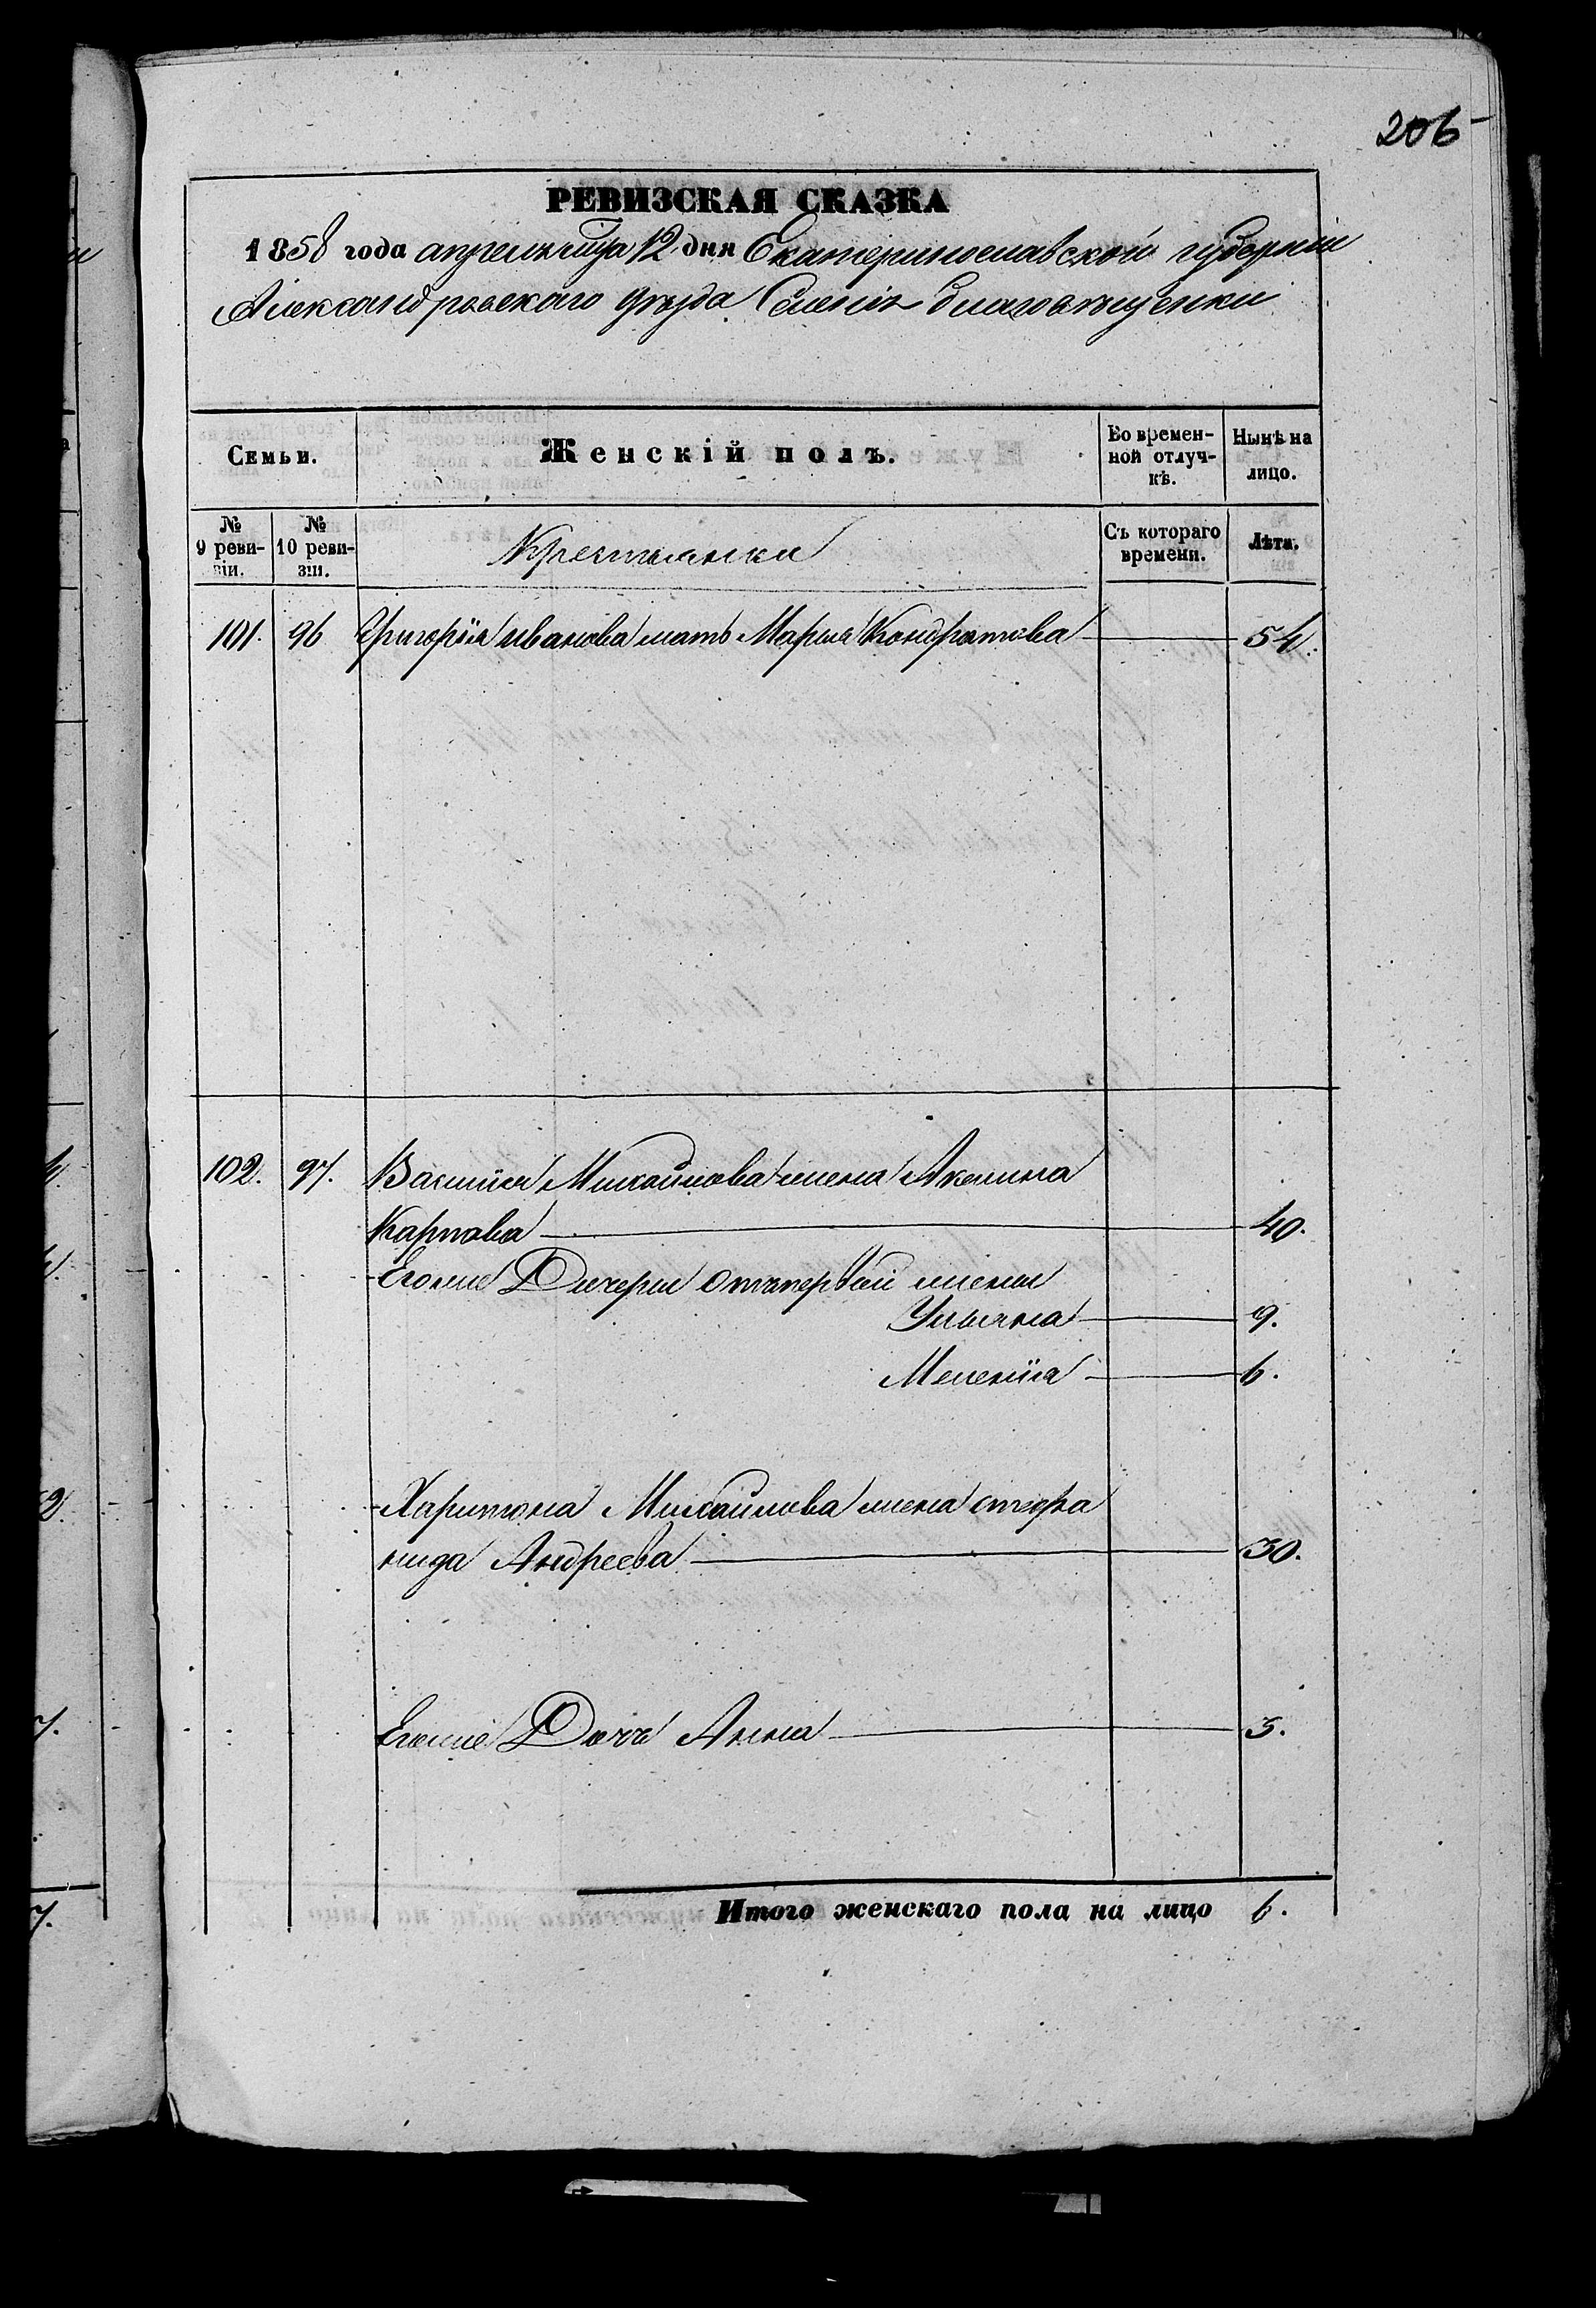 206
РЕВИЗСКАЯ СКАЗКА
1858 года апреля мца 12 дня Екатеринославской губерніи
Александровскаго уѣзда Селенія благовѣщенки
Семьи.
Женскій полъ.
Во времен-
ной отлуч-
кѣ.
Нынѣ на
лицо.
№
9 реви-
зіи.
№
10 реви-
зіи.
Крестьянки
Съ котораго
времени.
Лѣта.
101. 96 Григорія иванова мать Марья Кондратова 54.
102. 97. Василія Михайлова жена Акелина
Карпова 40.
Егоже Дочери отъ первой жены
Ульяна 9.
Меленія 6.
Харитона Михайлова жена стефа
нида Андреева 30.
Егоже Дочь Анна 5.
Итого женскаго пола на лицо 6.